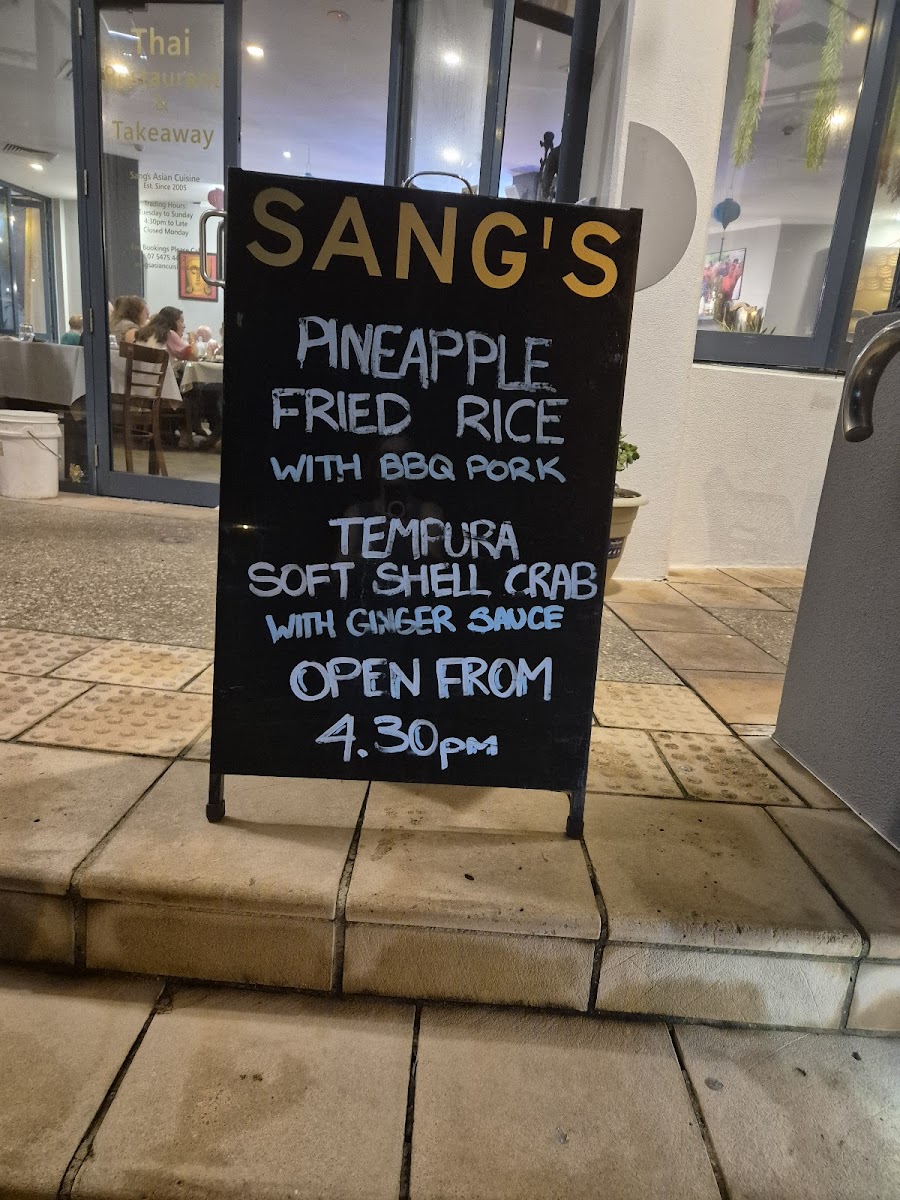 Thai
Restaurant
&
Takeaway
Sang's Asian Cuisine
Est. Since 2005
Trading Hours:
Tuesday to Sunday
4.30pm to Late
Closed Monday
Bookings Please
07 5475 44
SANG'S
PINEAPPLE
FRIED RICE
WITH BBQ PORK
TEMPURA
SOFT SHELL CRAB
WITH GINGER SAUCE
OPEN FROM
4.30pm